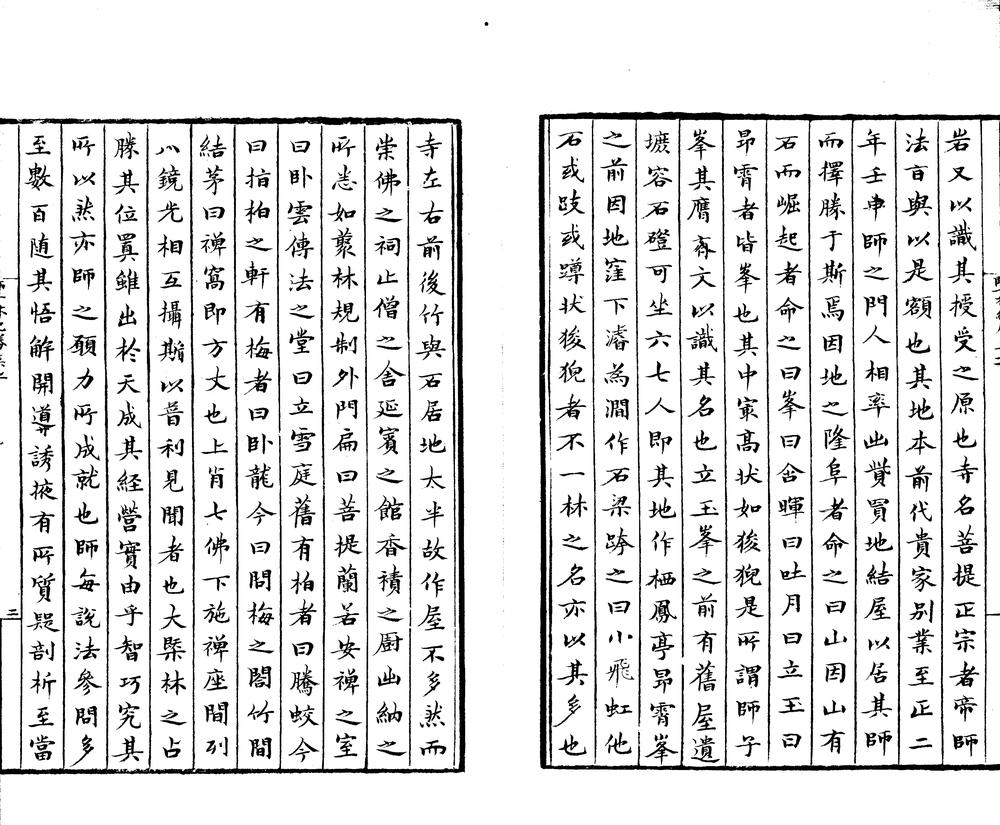 岩又以識其授受之原也寺名菩提正宗者帝師
法旨與以是額也其地本前代貴家别業至正二
年壬申師之門人相率出貲買地結屋以居其師
而擇勝于斯焉因地之隆阜者命之曰山因山有
石而崛起者命之曰峯曰含暉曰吐月曰立玉曰
昻霄者皆峯也其中㝡髙状如狻猊是所謂師子
峯其膺有文以識其名也立玉峯之前有舊屋遺
墌容石磴可坐六七人即其地作栖鳳亭昻霄峯
之前因地窪下濬為澗作石梁跨之曰小飛虹他
石或跂或蹲状狻猊者不一林之名亦以其多也
寺左右前後竹與石居地大半故作屋不多然而
崇佛之祠止僧之舍延賓之館香積之厨出納之
所悉如叢林規制外門扁曰菩提蘭若安禅之室
曰卧雲傳法之堂曰立雪庭舊有柏者曰騰蛟今
曰指柏之軒有梅者曰卧龍今曰問梅之閣竹間
結茅曰禅窩即方丈也上肖七佛下施禅座間列
八鏡光相互攝期以普利見聞者也大槩林之占
勝其位置雖出於天成其經營實由乎智巧究其
所以然亦師之願力所成就也師每說法參問多
至數百随其悟解開導誘掖有所質疑剖析至當
三